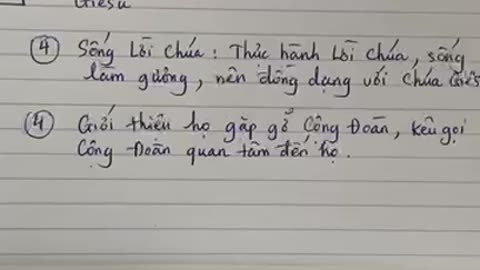 Giêsu
④ Sống Lời Chúa : Thực hành Lời Chúa, sống
làm gương, nên đồng dạng với Chúa Giês
④ Giới thiệu họ gặp gỡ Cộng Đoàn, kêu gọi
Cộng Đoàn quan tâm đến họ.